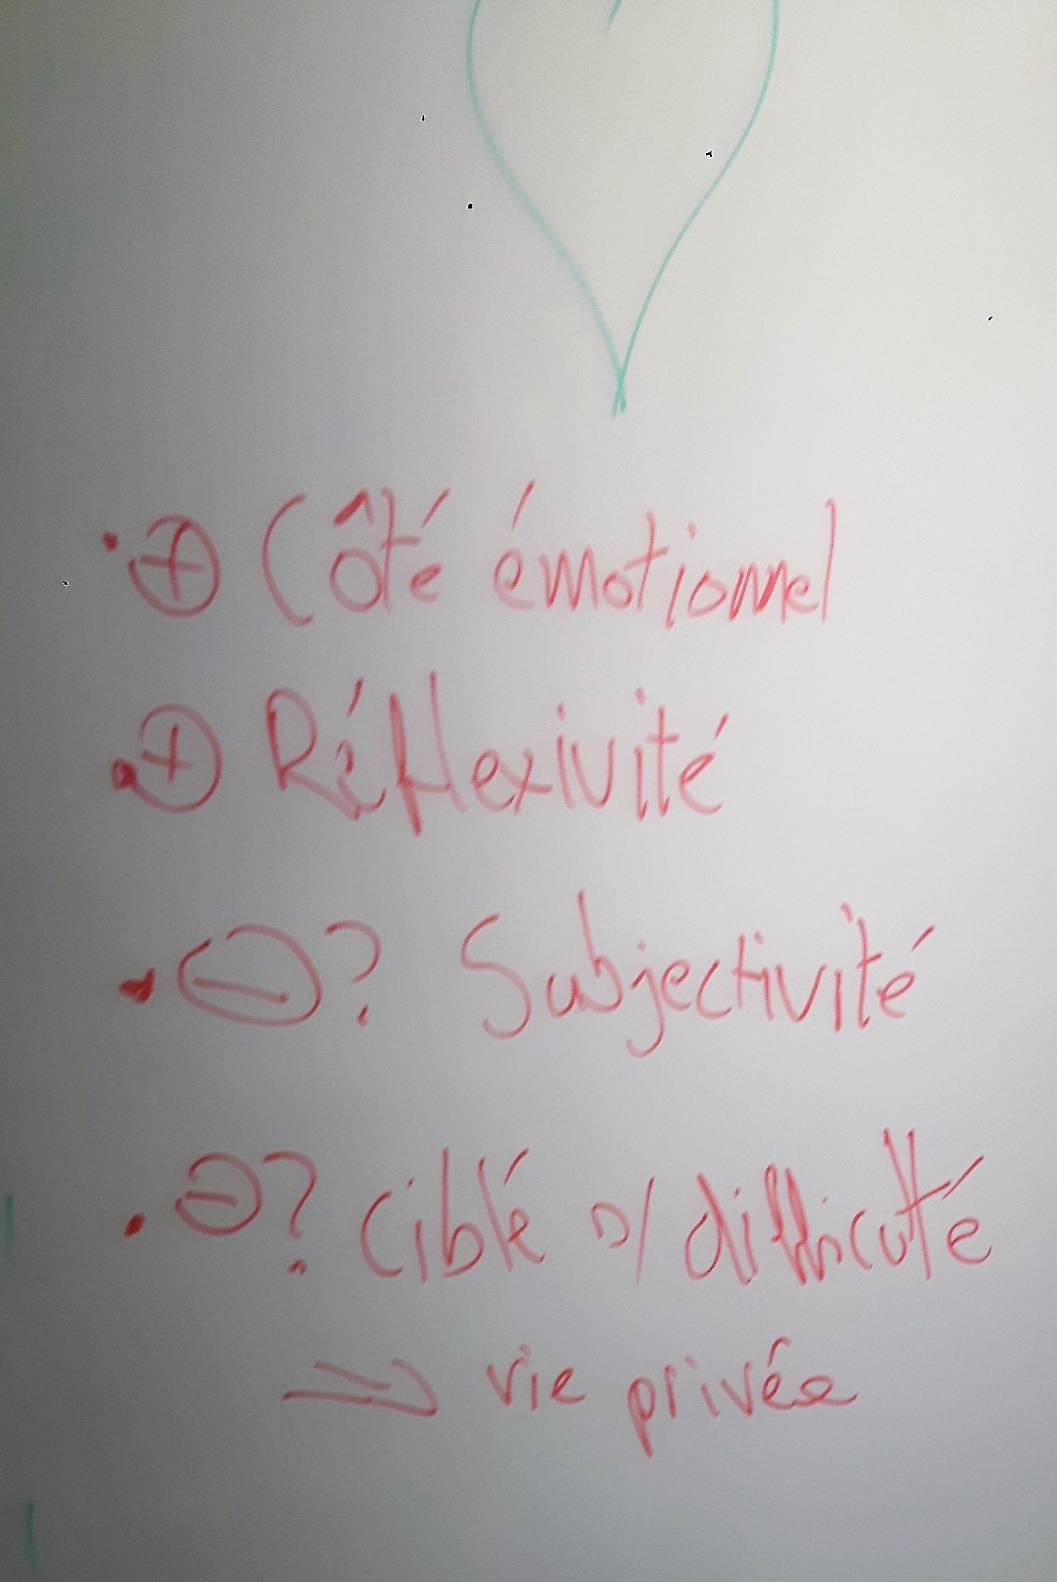 • ⊕ Côté émotionnel
• ⊕ Réflexivité
• ⊖? Subjectivité
• ⊖? Ciblé s/ difficulté
⇒ vie privée